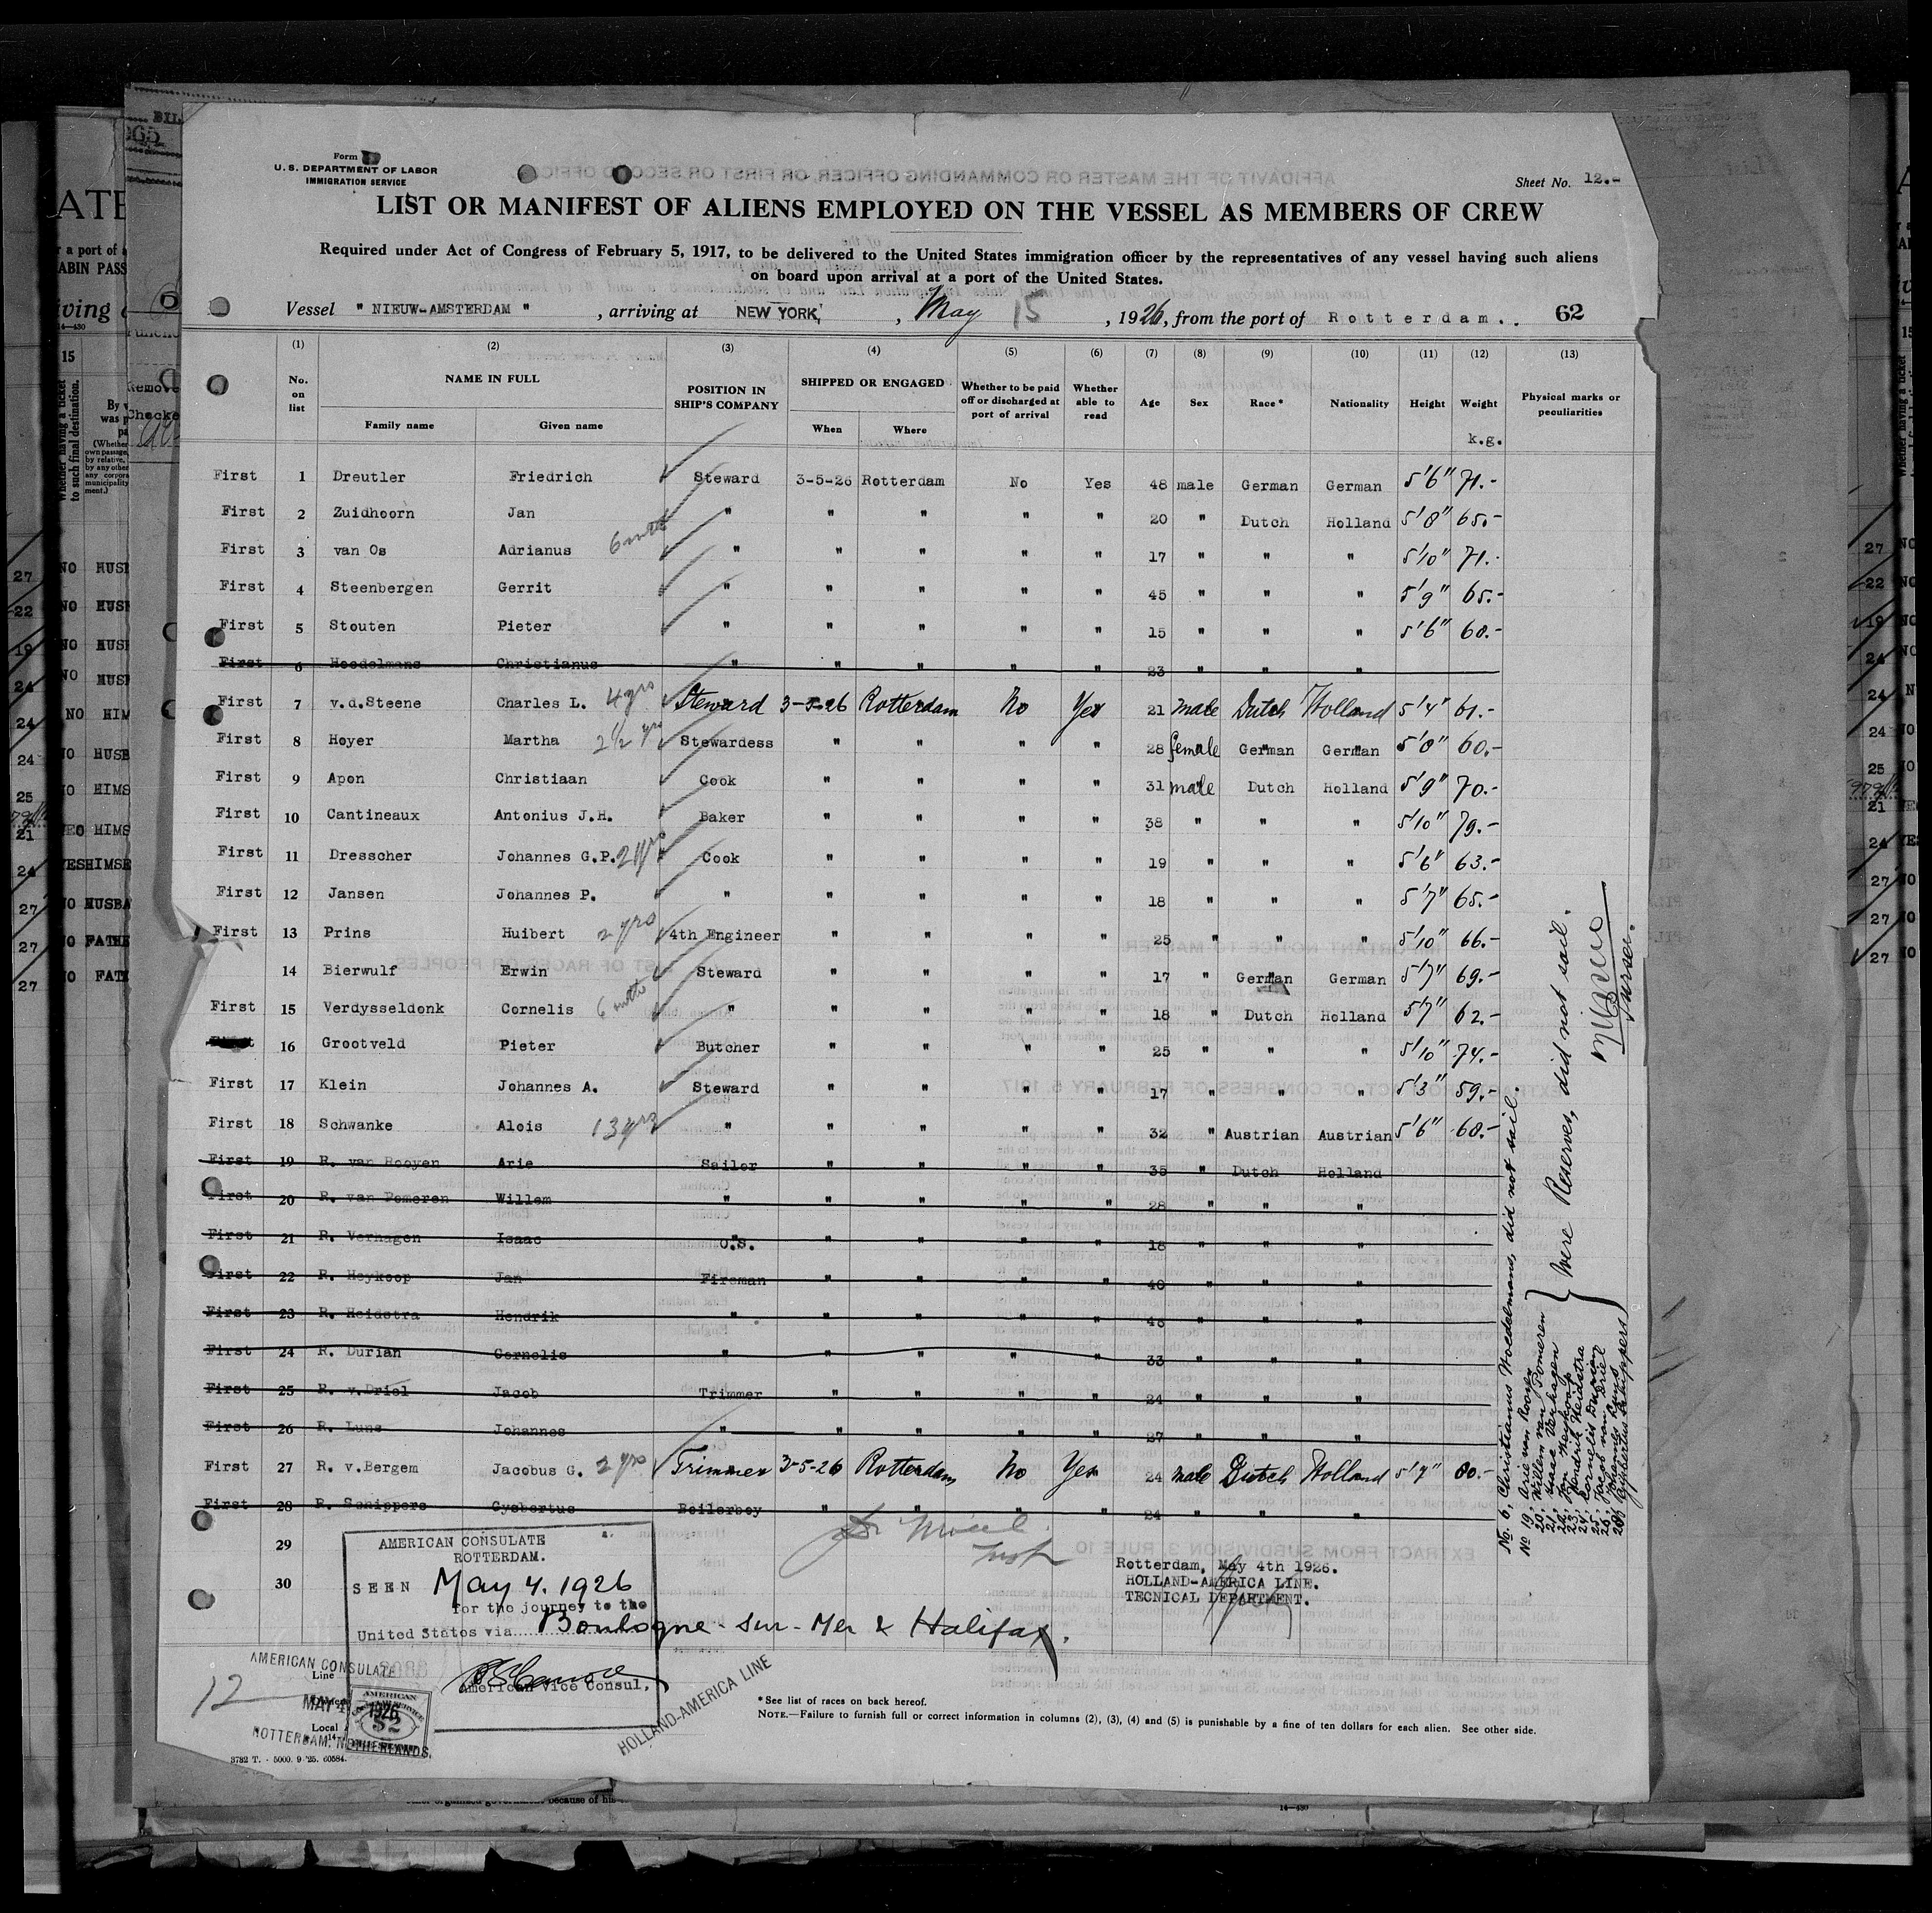 Form
U. S. DEPARTMENT OF LABOR
IMMIGRATION SERVICE
Sheet No. 12.-
LIST OR MANIFEST OF ALIENS EMPLOYED ON THE VESSEL AS MEMBERS OF CREW
Required under Act of Congress of February 5, 1917, to be delivered to the United States immigration officer by the representatives of any vessel having such aliens
on board upon arrival at a port of the United States.
Vessel " NIEUW-AMSTERDAM " , arriving at NEW YORK, , May 15 , 1926, from the port of Rotterdam.. 62
(1) (2) (3) (4) (5) (6) (7) (8) (9) (10) (11) (12) (13)
No. on list NAME IN FULL Family name Given name POSITION IN SHIP'S COMPANY SHIPPED OR ENGAGED When Where Whether to be paid off or discharged at port of arrival Whether able to read Age Sex Race * Nationality Height Weight k.g. Physical marks or peculiarities
First 1 Dreutler Friedrich Steward 3-5-26 Rotterdam No Yes 48 male German German 5'6" 71.-
First 2 Zuidhoorn Jan " " " " " 20 " Dutch Holland 5'8" 65.-
First 3 van Os Adrianus 6 mths " " " " " 17 " " " 5'10" 71.-
First 4 Steenbergen Gerrit " " " " " 45 " " " 5'9" 65.-
First 5 Stouten Pieter " " " " " 15 " " " 5'6" 60.-
First 6 Hoedelmans Christianus " " " " " 23 " " "
First 7 v.d.Steene Charles L. 4 yrs Steward 3-5-26 Rotterdam No Yes 21 male Dutch Holland 5'4" 61.-
First 8 Hoyer Martha 2½ yrs Stewardess " " " " 28 female German German 5'8" 60.-
First 9 Apon Christiaan Cook " " " " 31 male Dutch Holland 5'9" 70.-
First 10 Cantineaux Antonius J.H. Baker " " " " 38 " " " 5'10" 79.-
First 11 Dresscher Johannes G.P. 2 yrs Cook " " " " 19 " " " 5'6" 63.-
First 12 Jansen Johannes P. " " " " " 18 " " " 5'7" 65.-
First 13 Prins Huibert 2 yrs 4th Engineer " " " " 25 " " " 5'10" 66.-
14 Bierwulf Erwin Steward " " " " 17 " German German 5'7" 69.-
First 15 Verdysseldonk Cornelis 6 mths " " " " " 18 " Dutch Holland 5'7" 62.-
16 Grootveld Pieter Butcher " " " " 25 " " " 5'10" 74.-
First 17 Klein Johannes A. Steward " " " " 17 " " " 5'3" 59.-
First 18 Schwanke Alois 13 yrs " " " " " 32 " Austrian Austrian 5'6" 60.-
First 19 R. van Rooyen Arie Sailor " " " " 35 " Dutch Holland
First 20 R. van Pomeren Willem " " " " " 28 " " "
First 21 R. Verhagen Isaac O.S. " " " " 18 " " "
First 22 R. Heykoop Jan Fireman " " " " 40 " " "
First 23 R. Heidstra Hendrik " " " " " 48 " " "
First 24 R. Durian Cornelis " " " " " 33 " " "
First 25 R. v.Driel Jacob Trimmer " " " " 24 " " "
First 26 R. Luns Johannes " " " " " 27 " " "
First 27 R. v.Bergem Jacobus G. 2 yrs Trimmer 3-5-26 Rotterdam No Yes 24 male Dutch Holland 5'7" 80.-
First 28 R. Schippers Gysbertus Boilerboy " " " " 24 " " "
29
30
No. 6, Christianus Hoedelmans, did not sail.
No 19, Arie van Rooyen
20, Willem van Pomeren
21, Isaac Verhagen
22, Jan Heykoop
23, Hendrik Heidstra
24, Cornelis Durian
25, Jacob van Driel
26, Johannes Luns
28, Gysbertus Schippers
Were Reserves, did not sail.
Purser.
AMERICAN CONSULATE
ROTTERDAM.
SEEN May 4. 1926
for the journey to the
United States via Boulogne-sur-Mer & Halifax.
American Vice Consul.
Rotterdam, May 4th 1926.
HOLLAND-AMERICA LINE.
TECNICAL DEPARTMENT.
AMERICAN CONSULATE
Line
MAY 4 1926
Local
ROTTERDAM. NETHERLANDS.
AMERICAN
$2
12
HOLLAND-AMERICA LINE
* See list of races on back hereof.
NOTE.—Failure to furnish full or correct information in columns (2), (3), (4) and (5) is punishable by a fine of ten dollars for each alien. See other side.
3732 T. - 5000. 9 '25. 60584.
14-430